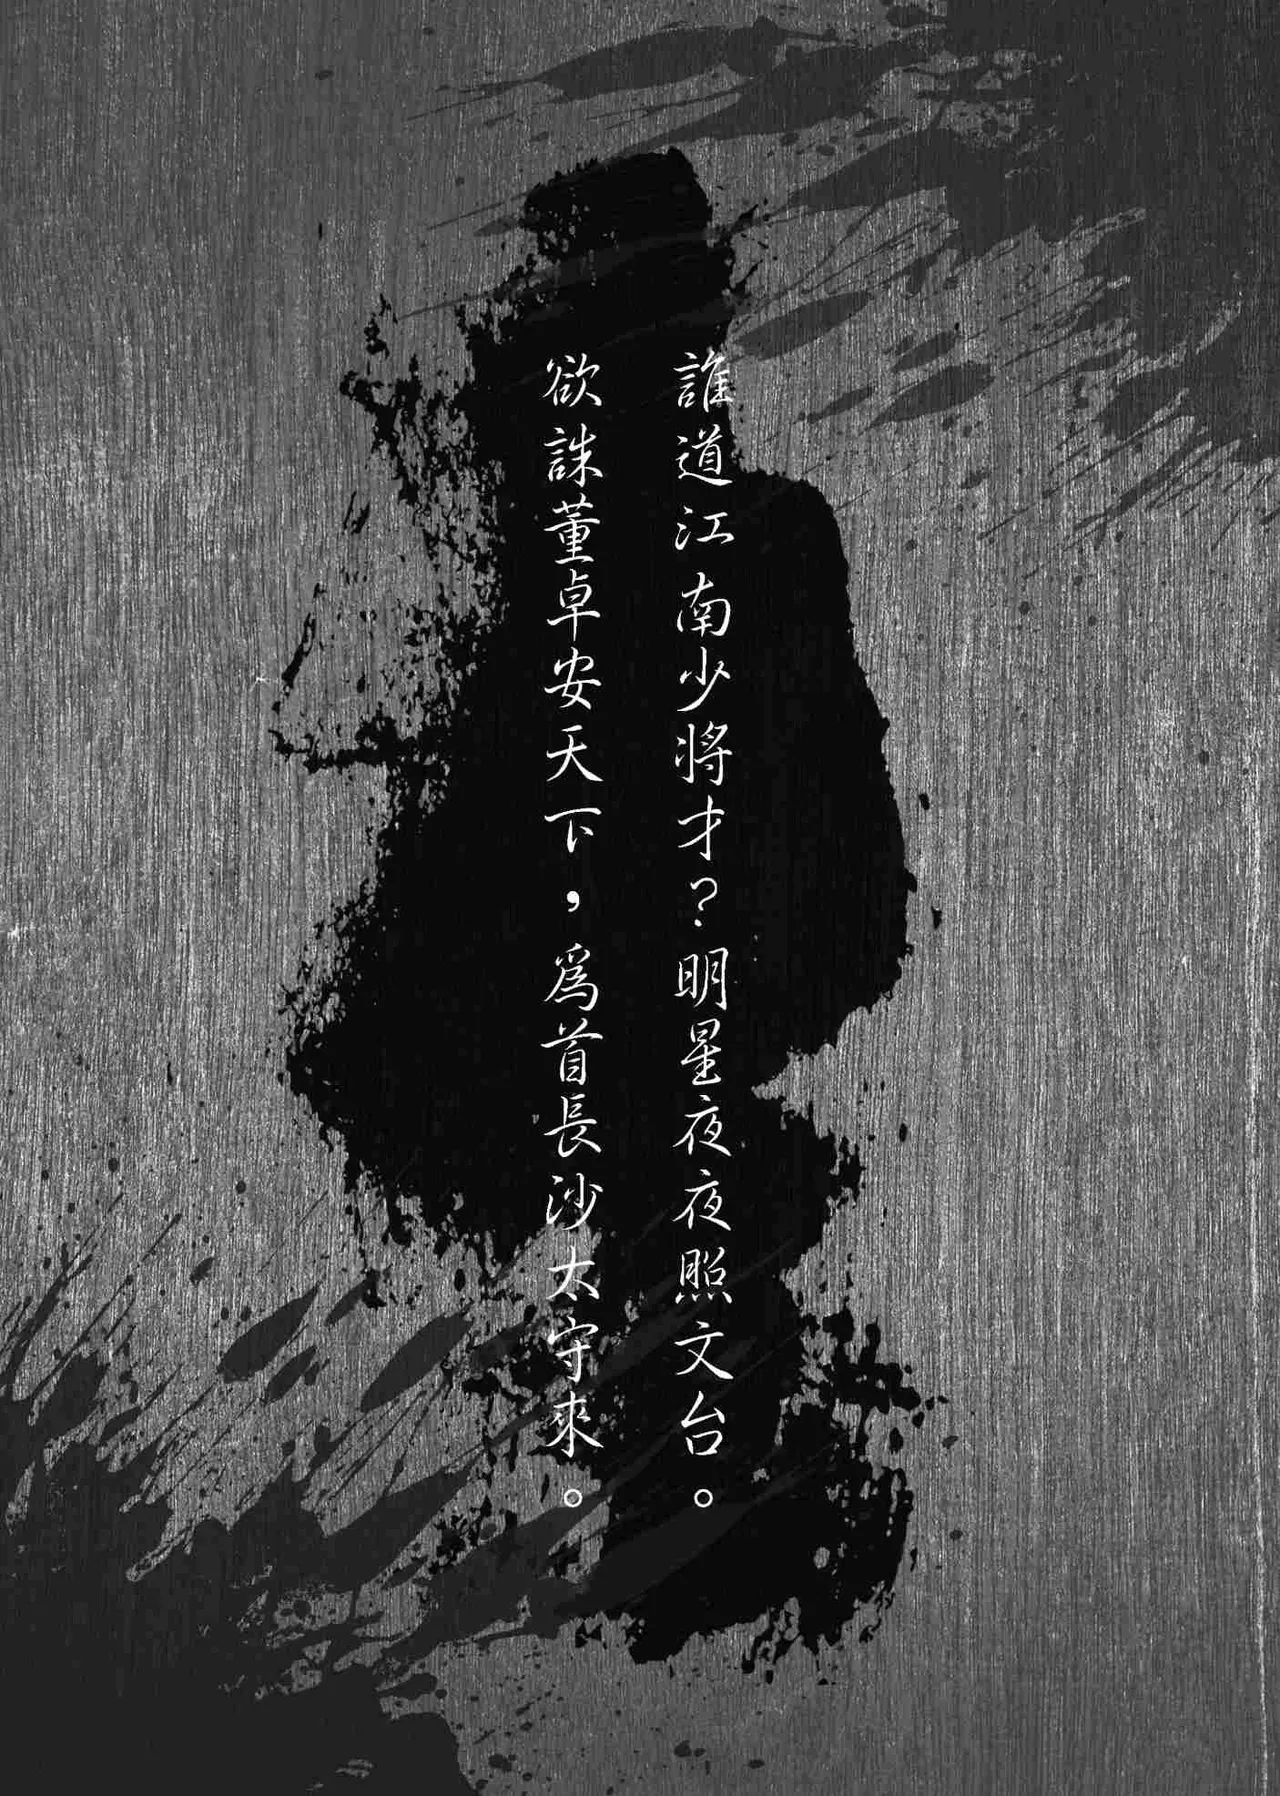 誰道江南少將才？明星夜夜照文台。
欲誅董卓安天下，爲首長沙太守來。